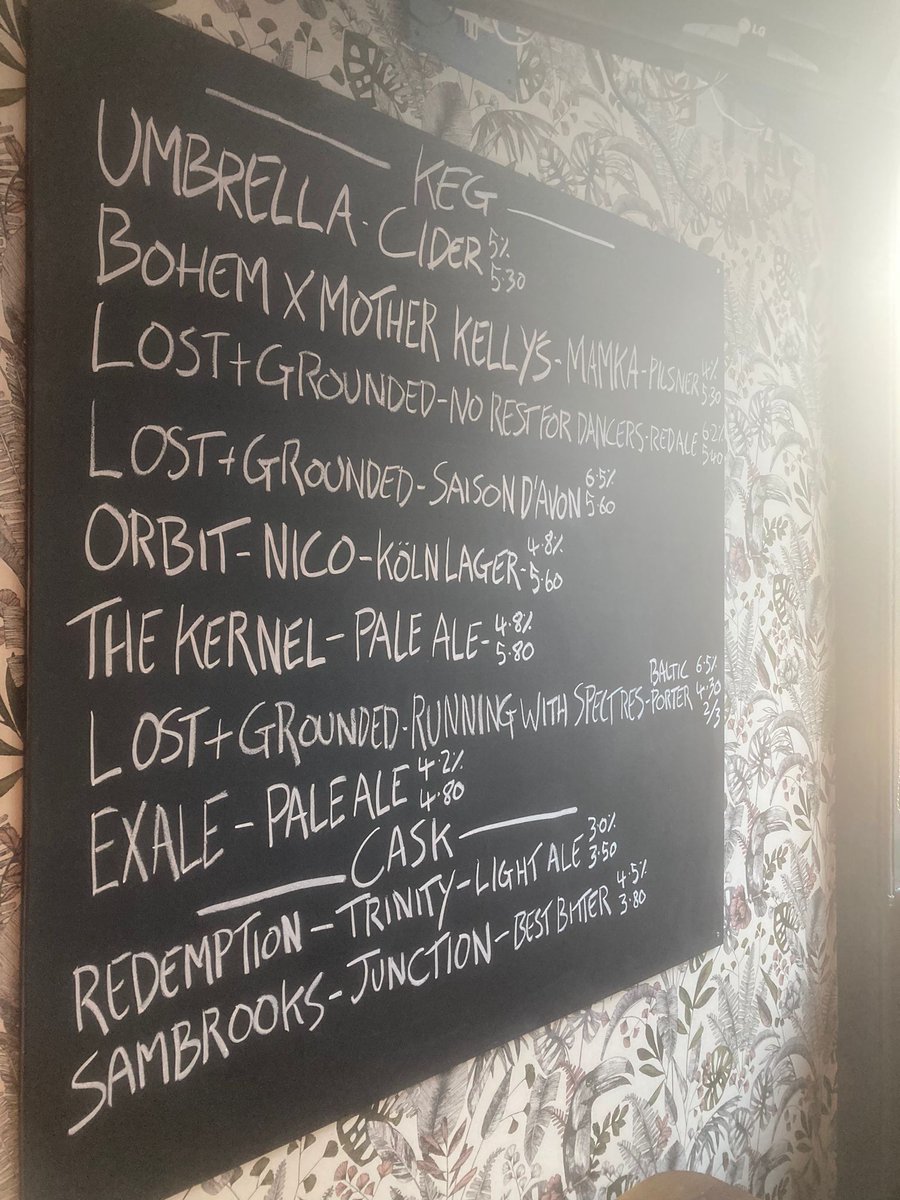 KEG
UMBRELLA - CIDER 5% 5.30
BOHEM X MOTHER KELLY'S - MAMKA - PILSNER 4% 5.30
LOST + GROUNDED - NO REST FOR DANCERS - RED ALE 6.2% 5.40
LOST + GROUNDED - SAISON D'AVON 6.5% 5.60
ORBIT - NICO - KÖLN LAGER - 4.8% 5.60
THE KERNEL - PALE ALE - 4.8% 5.80
LOST + GROUNDED - RUNNING WITH SPECTRES - BALTIC PORTER 6.5% 4.30 2/3
EXALE - PALE ALE 4.2% 4.80
CASK
REDEMPTION - TRINITY - LIGHT ALE 3.0% 3.50
SAMBROOKS - JUNCTION - BEST BITTER 4.5% 3.80
LG